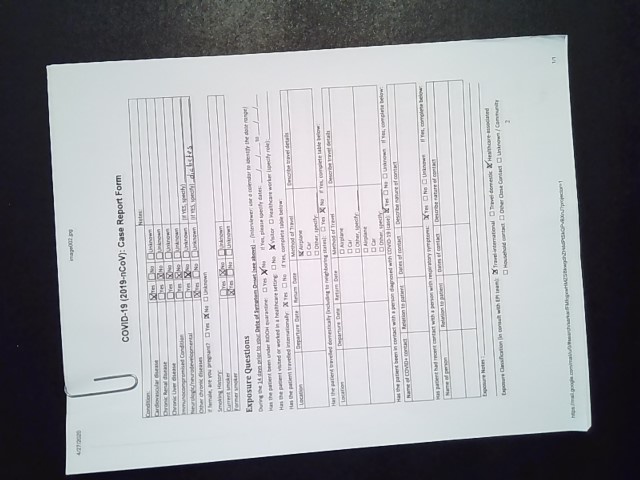 4/27/2020
image002.jpg
COVID-19 (2019-nCoV): Case Report Form
Condition: Notes:
Cardiovascular disease Yes No Unknown
Chronic Renal disease Yes No Unknown
Chronic Liver disease Yes No Unknown
Immunocompromised Condition Yes No Unknown
Neurologic/neurodevelopmental Yes No Unknown (If YES, specify)
Other chronic diseases Yes No Unknown (If YES, specify) diabetes
If female, are you pregnant? Yes No Unknown
Smoking History:
Current smoker Yes No Unknown
Former smoker Yes No Unknown
Exposure Questions
During the 14 days prior to your Date of Symptom Onset (see above) - (Interviewer: use a calendar to identify the date range)
Has the patient been under RIDOH quarantine: Yes No If yes, please specify dates: __/__/__ to __/__/__
Has the patient visited or worked in a healthcare setting: No Visitor Healthcare worker (specify role):
Has the patient travelled internationally: Yes No If yes, complete table below:
Location Departure Date Return Date Method of Travel Describe travel details
Airplane
Car
Other, specify:
Has the patient travelled domestically (including to neighboring states): Yes No If yes, complete table below:
Location Departure Date Return Date Method of Travel Describe travel details
Airplane
Car
Other, specify:
Airplane
Car
Other, specify:
Has the patient been in contact with a person diagnosed with COVID-19 Yes No Unknown If yes, complete below:
Name of COVID+ contact Relation to patient Dates of contact Describe nature of contact
Has patient had recent contact with a person with respiratory symptoms: Yes No Unknown If yes, complete below:
Name of person Relation to patient Dates of contact Describe nature of contact
Exposure Notes
Exposure Classification (in consult with EPI team): Travel-international Travel-domestic Healthcare-associated
Household contact Other Close Contact Unknown / Community
2
1/1